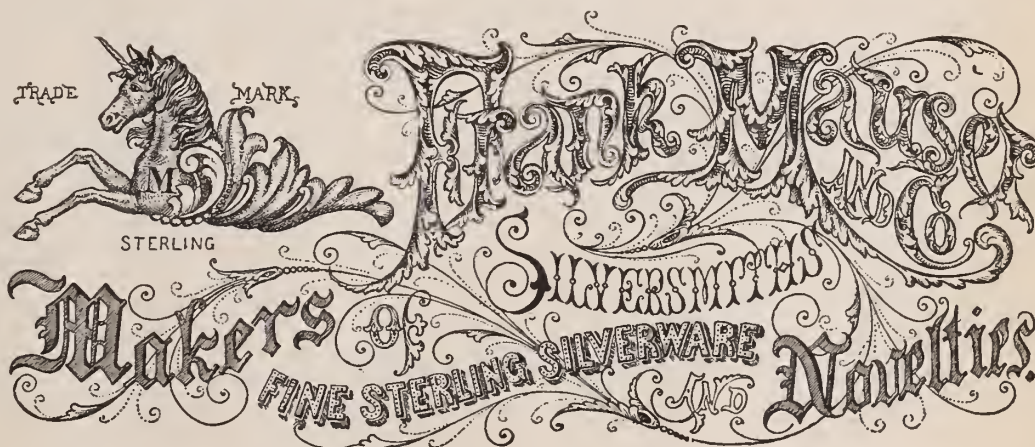 TRADE MARK
M
STERLING
Frank Mauser
AND Co
SILVERSMITHS
Makers of
FINE STERLING SILVERWARE
AND Novelties.